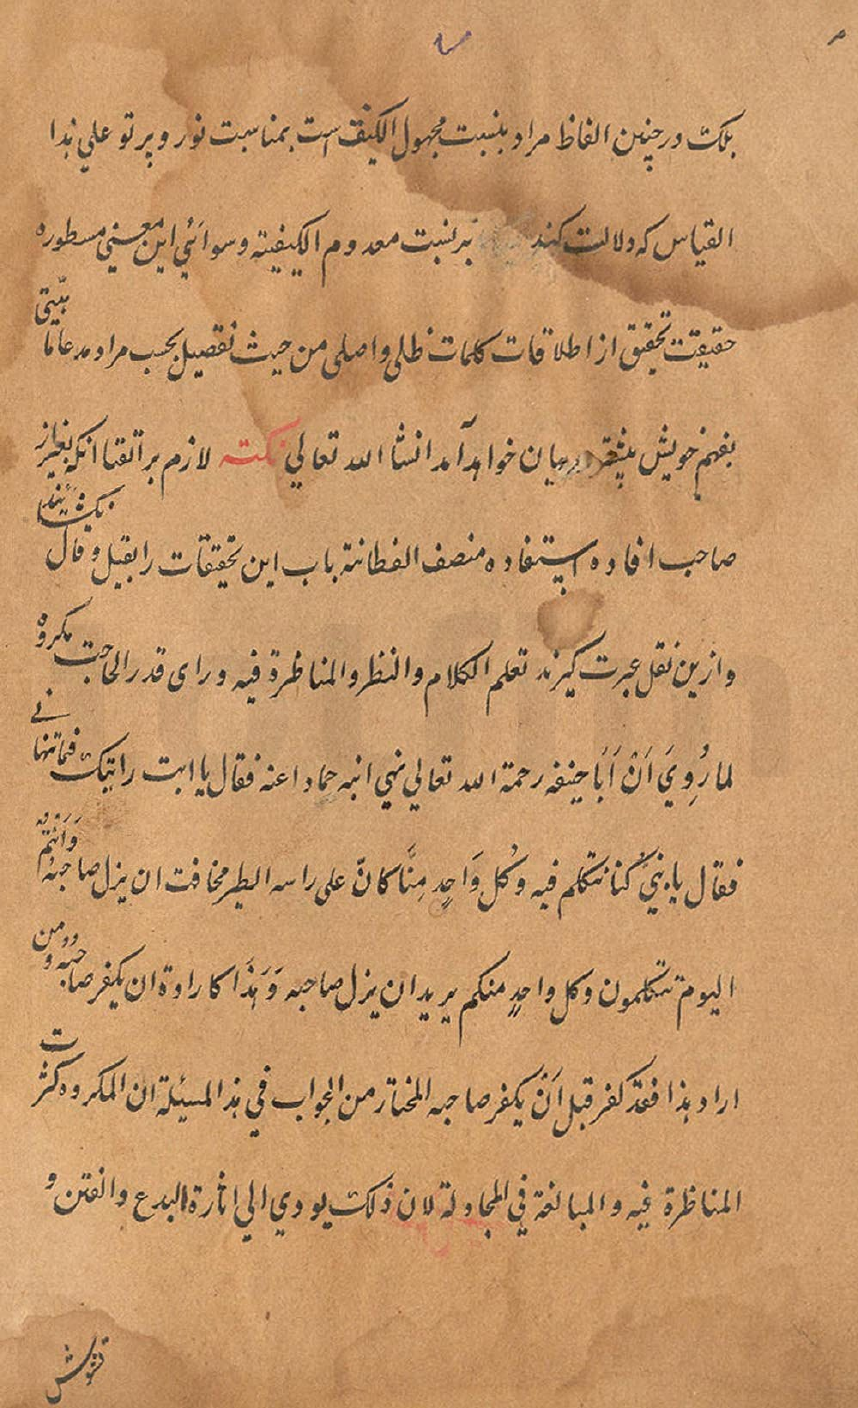 بلکه در چنین الفاظ مراد بنسبت مجهول الکیف است بمناسبت نور و پرتو علی هذا
القیاس که دلالت کند بر نسبت معدوم الکیفیته و سوائی این معنی مسطوره
حقیقت تحقیق از اطلاقات کلمات ظلی و اصلی من حیث تفصیل بحسب مراد مدعا ما بیتی
بفهم خویش بیشتر در میان خواهد آمد انشا الله تعالی نکته لازم بر اتقیا آنکه بغیر از
صاحب افاده و استفاده منصف الفطانة باب این تحقیقات را بقیل و قال نکشایند
و ازین نقل عبرت گیرند تعلم الکلام والنظر والمناظرة فیه ورای قدر الحاجت مکروه
لما رُوِيَ اَنْ اَبَا حنیفه رحمة الله تعالی نهی ابنه حماد اعنه فقال یا ابت رایتک فما تنهانے
فقال یا بنیَّ کنا نتکلم فیه وَکُل وَاحِدٍ مِنَّا کانّ علی راسه الطیر مخافت ان یزل صاحبه وَاَنْتم
الیوم تتکلمون وکل واحدٍ منکم یرید ان یزل صاحبه وَهَذَا کارادة ان یکفر صاحبه ومن
اراد هذا فقَدْ کفر قبل اَنْ یکفر صاحبه المختار من الجواب فی هذ المسیلة ان المکروه کثرت
المناظرة فیه والمبالغة فی المجادلة لان ذلک یودی الی اثارة البدع والفتن و